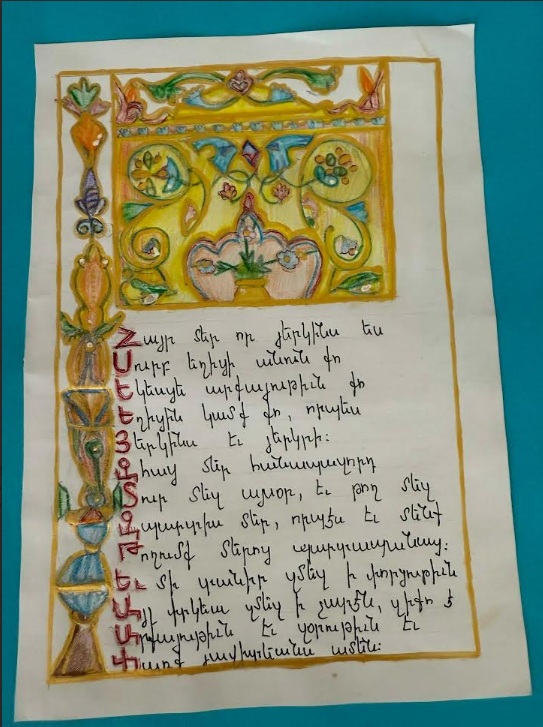 Հայր մեր որ յերկինս ես
Սուրբ եղիցի անուն քո
Եկեսցե արքայութիւն քո
Եղիցին կամք քո, որպես
Յերկինս եւ յերկրի։
Զհաց մեր հանապազորդ
Տուր մեզ այսօր, եւ թող մեզ
Զպարտիս մեր, որպէս եւ մենք
Թողումք մերոց պարտապանաց։
Եւ մի տանիր զմեզ ի փորձութիւն
Այլ փրկեա զմեզ ի չարէն, զի քո է
Արքայութիւն եւ զօրութիւն եւ
Փառք յաւիտեանս ամեն։